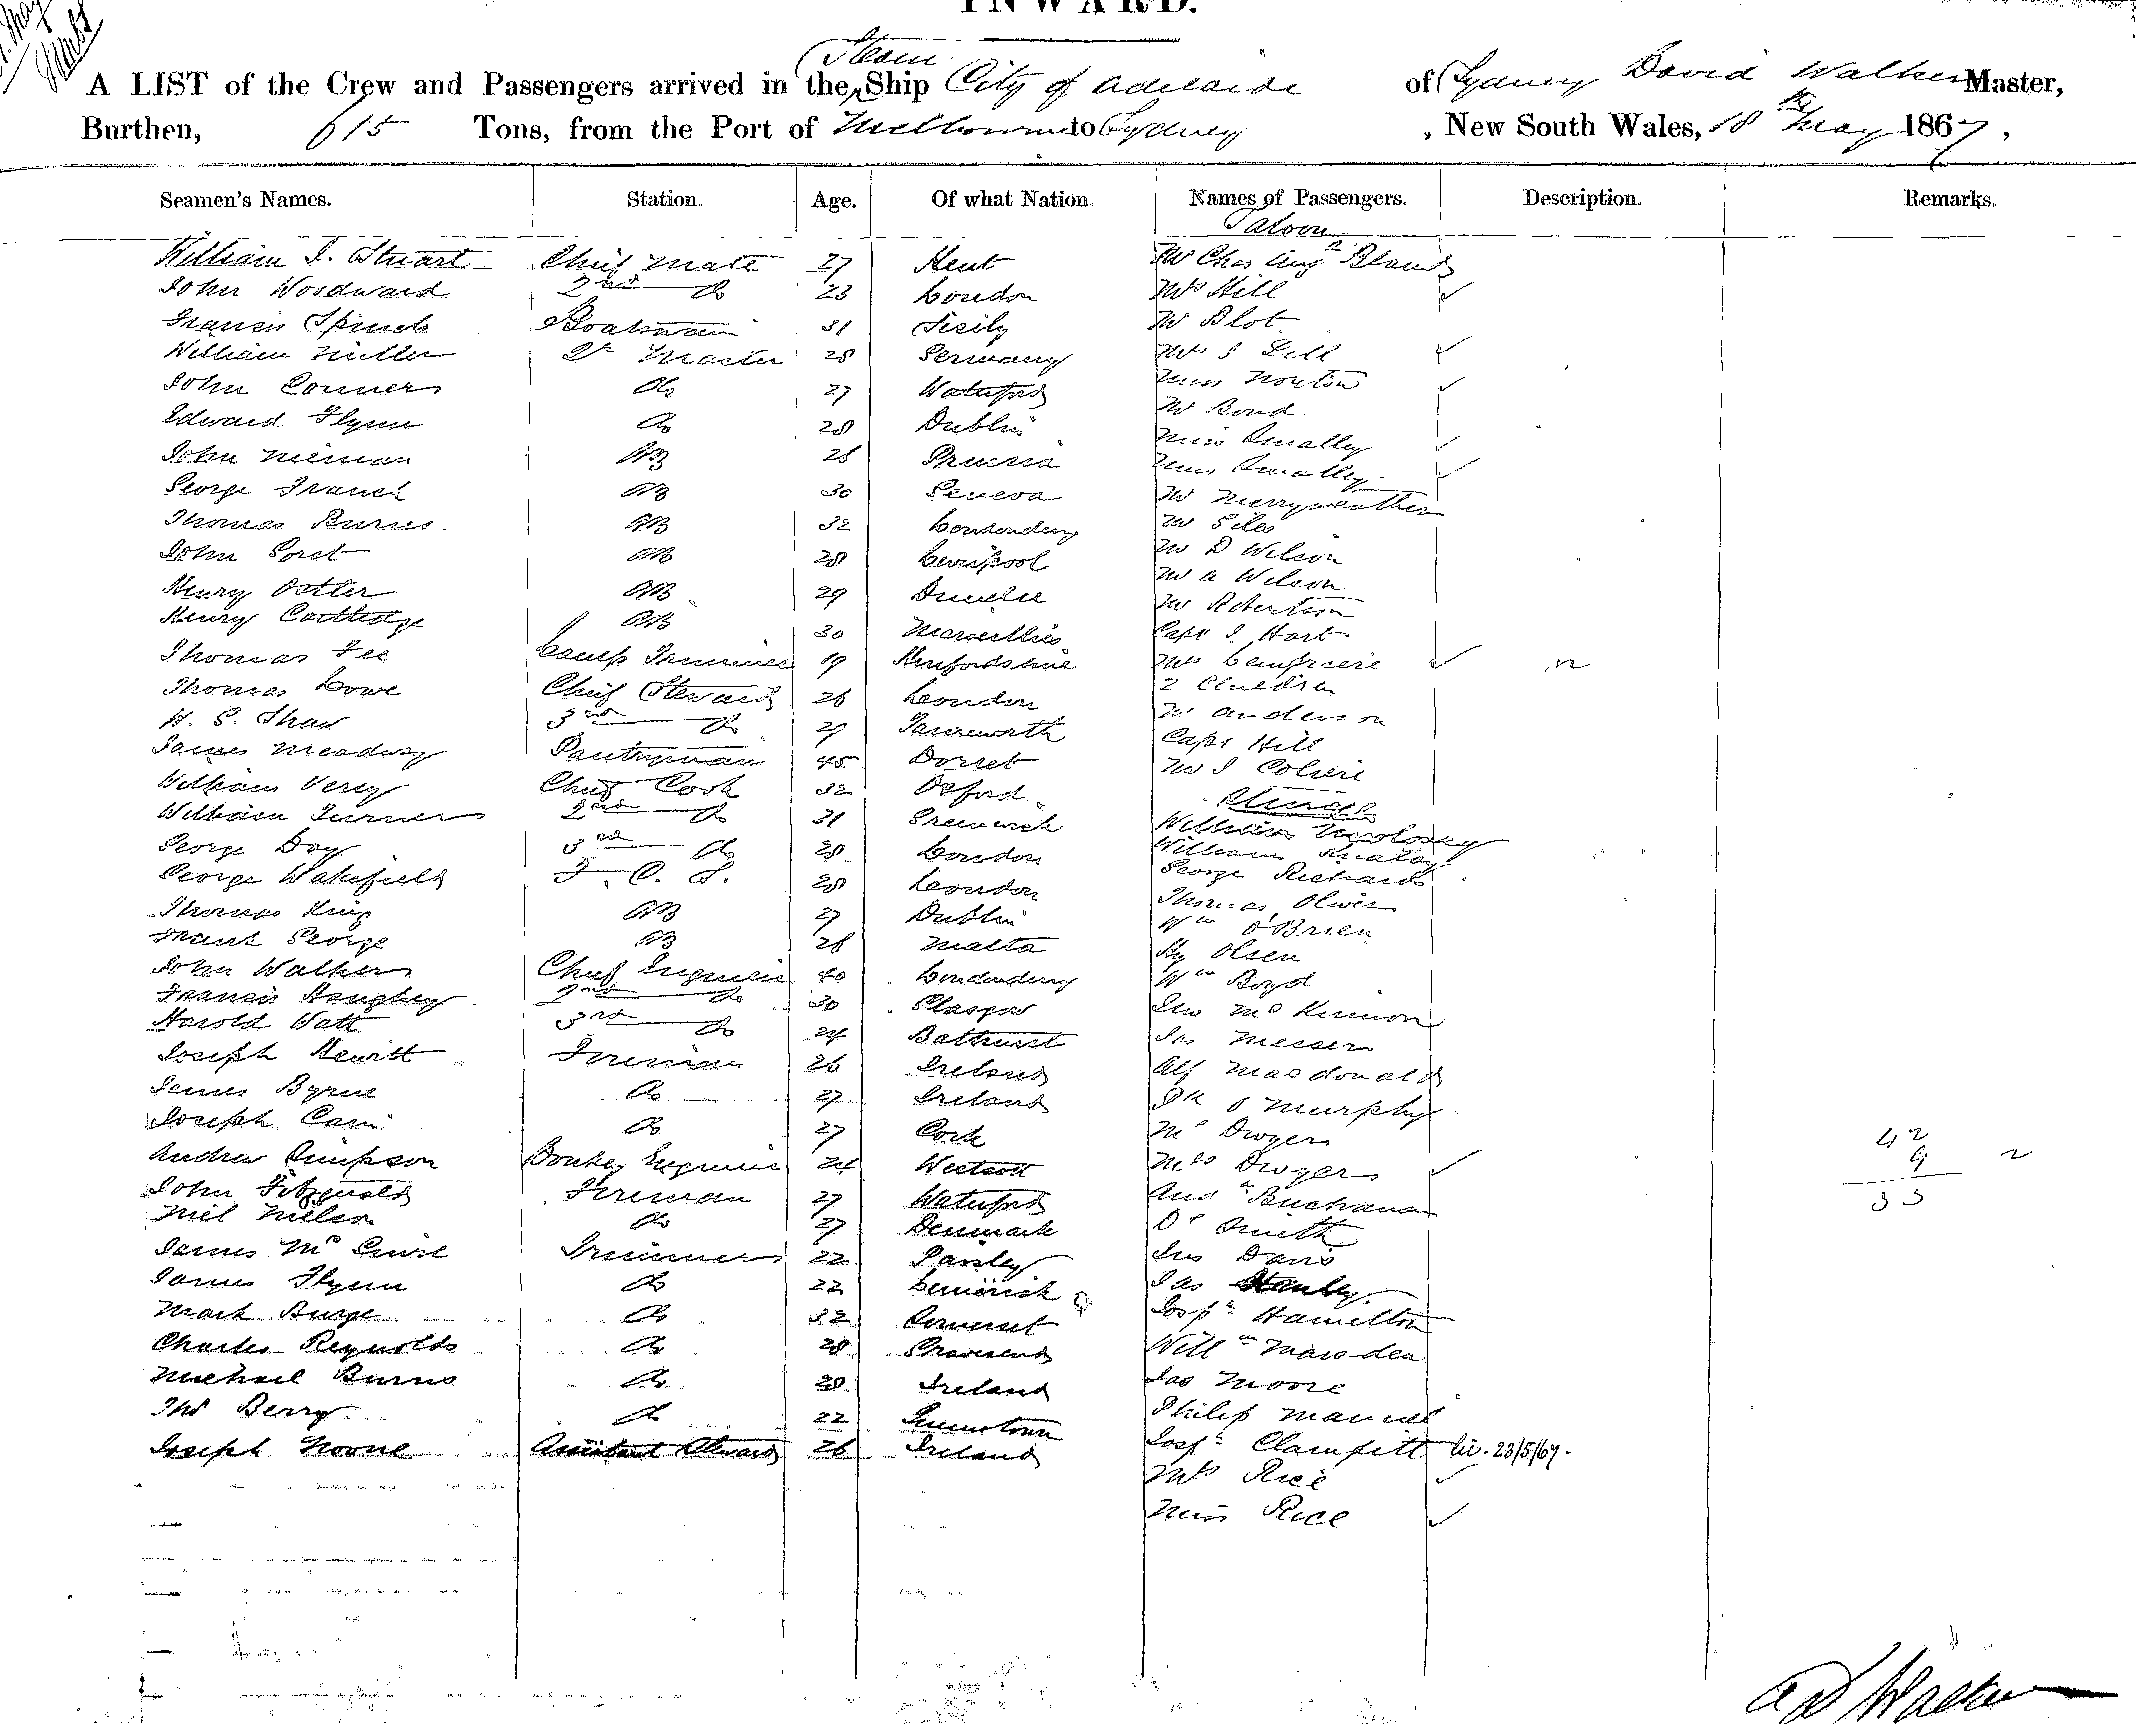 INWARD.
A LIST of the Crew and Passengers arrived in the Steam Ship City of Adelaide of Sydney David Walker Master,
Burthen, 615 Tons, from the Port of Melbourne to Sydney , New South Wales, 18th May 1867,
Seamen's Names. Station. Age. Of what Nation. Names of Passengers. Description. Remarks.
Saloon
William J. Stuart Chief Mate 27 Kent Mr Chas Augn Bland
John Woodward 2nd Do 23 London Mrs Hill
Francis 31 Sicily Mr Blot
William Miller Qr Master 28 Germany Mrs J Dill
John Conners Do 27 Waterford Miss Norton
Edward Flynn Do 28 Dublin Mr Bond
John Nieman AB 28 Prussia Miss Smalley
George Franch AB 30 Geneva Miss Smalley
Thomas Burns AB 32 Londonderry Mr Merryweather
John AB 28 Liverpool Mr Giles
Mr D Wilson
Henry Ostler AB 29 Dundee Mr A Wilson
Henry AB 30 Marseilles Mr Robertson
Capt J. Hart
Thomas Fee Lamp Trimmer 19 Mrs
Thomas Lowe Chief Steward 26 London 2 Children
H. S. Shaw 3rd Do 29 Mr Anderson
James Meadway Pantryman 45 Dorset Capt Hill
William Verey Chief Cook 32 Mr J
William Turner 2nd Do 31 Greenwich Steerage
George Day 3rd Do 28 London William
William
George Wakefield F. C. S. 28 London George Richards
Thomas King AB 27 Dublin Thomas Oliver
Frank George AB 28 Malta Wm O'Brien
John Walker Chief Engineer 40 Londonderry Hy Olsen
Wm Boyd
Francis Heughey 2nd Do 30 Glasgow Jno McKinnon
Harold Watt 3rd Do 24 Bathurst Jas Messer
Joseph Hewitt Fireman 26 Ireland Alf Macdonald
James Byrne Do 27 Ireland Pk O Murphy
Joseph Cain Do 27 Cork Mr Dwyer
Andrew Simpson Donkey Engineer 24 Mrs Dwyer 42
John Fitzgerald Fireman 27 Waterford Andw Buchanan 9
Niel Nielson Do 27 Denmark Dr Smith 33
James McGuire Trimmer 22 Paisley Jno Davis
James Flynn Do 22 Limerick Jas Stanley
Mark Burge Do 32 Somerset Josph Hamilton
Charles Reynolds Do 28 Gravesend Willm Marsden
Michael Burns Do 28 Ireland Jas Moore
Thos Berry Do 22 Queenstown Philip Manuel
Joseph Noone Assistant Steward 26 Ireland Josph Clampitt lic. 23/5/67.
Mrs Rice
Miss Rice